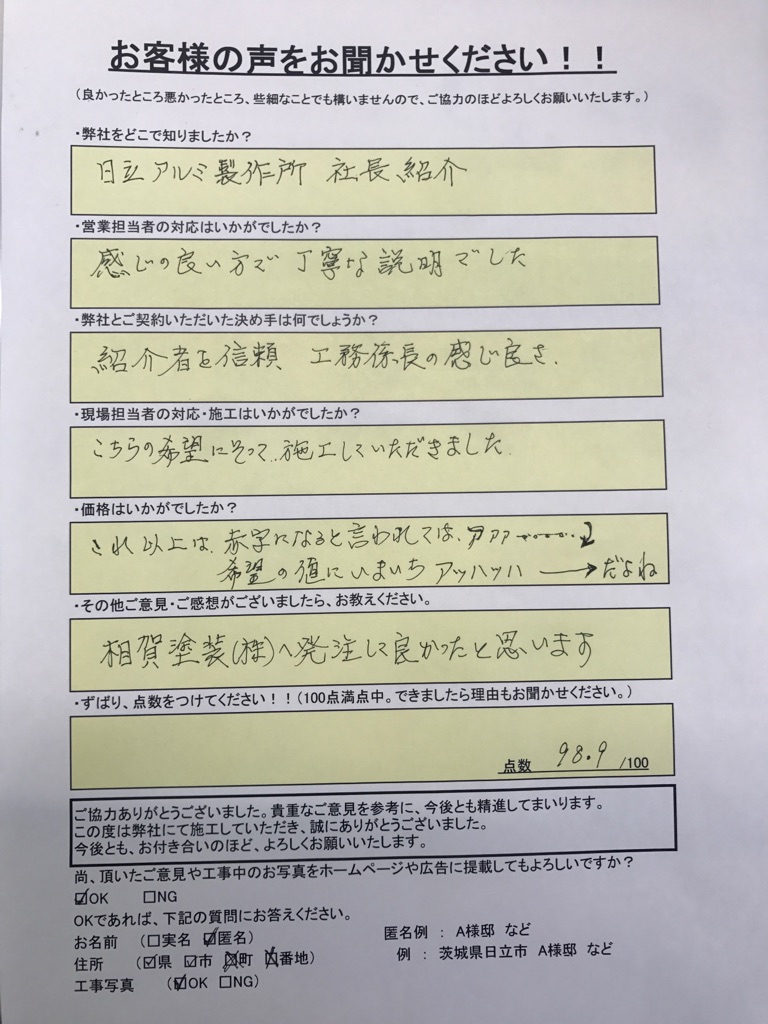 お客様の声をお聞かせください！！
（良かったところ悪かったところ、些細なことでも構いませんので、ご協力のほどよろしくお願いいたします。）
・弊社をどこで知りましたか？
日立アルミ製作所 社長紹介
・営業担当者の対応はいかがでしたか？
感じの良い方で 丁寧な説明でした
・弊社とご契約いただいた決め手は何でしょうか？
紹介者を信頼 工務係長の感じ良さ.
・現場担当者の対応・施工はいかがでしたか？
こちらの希望にそって、施工していただきました.
・価格はいかがでしたか？
これ以上は、赤字になると言われては、
希望の値にいまいち アッハッハ → だよね
・その他ご意見・ご感想がございましたら、お教えください。
相賀塗装(株)へ発注して良かったと思います
・ずばり、点数をつけてください！！（100点満点中。できましたら理由もお聞かせください。）
点数 98.9 /100
ご協力ありがとうございました。貴重なご意見を参考に、今後とも精進してまいります。
この度は弊社にて施工していただき、誠にありがとうございました。
今後とも、お付き合いのほど、よろしくお願いいたします。
尚、頂いたご意見や工事中のお写真をホームページや広告に掲載してもよろしいですか？
☑OK □NG
OKであれば、下記の質問にお答えください。
お名前 （□実名 ☑匿名） 匿名例 ： A様邸 など
住所 （☑県 ☑市 ☒町 ☒番地） 例 ： 茨城県日立市 A様邸 など
工事写真 （☑OK □NG）